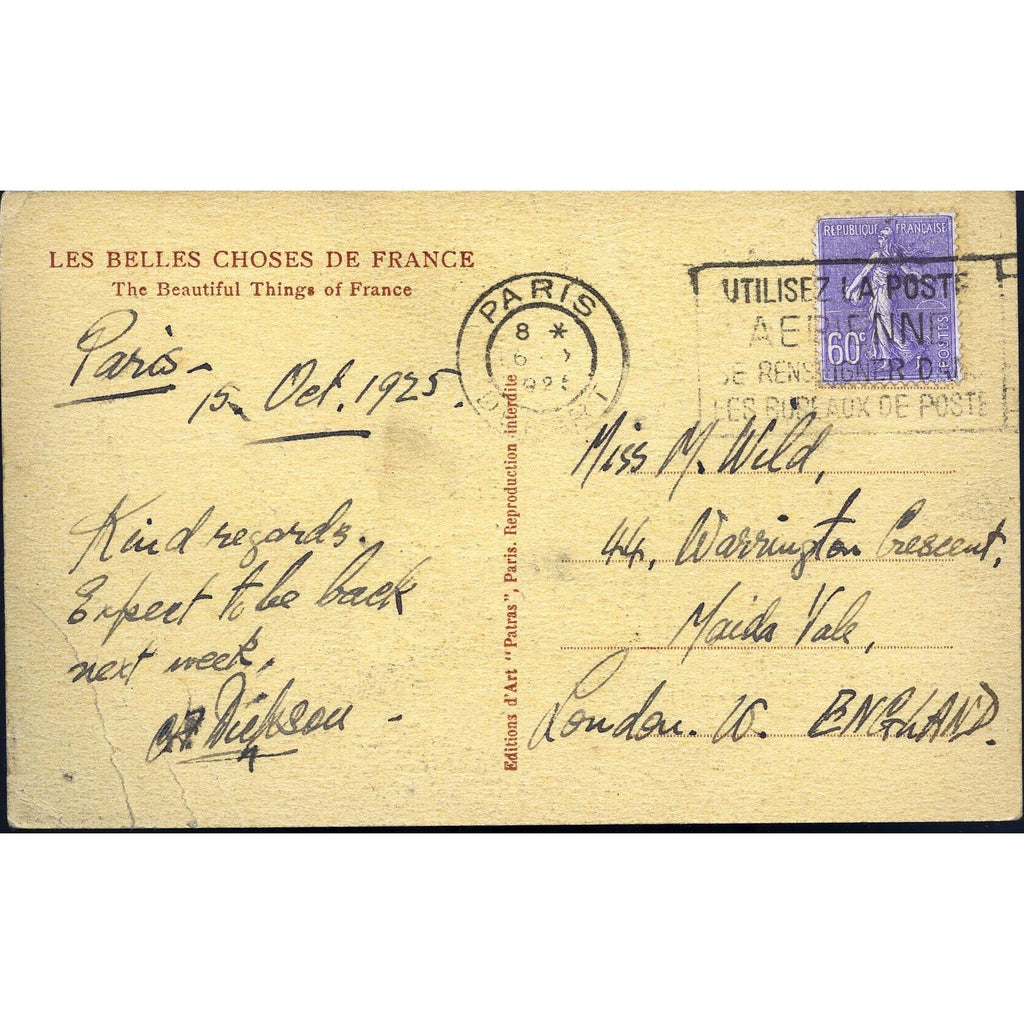 LES BELLES CHOSES DE FRANCE
The Beautiful Things of France
Paris -
15. Oct. 1925.
Kind regards.
Expect to be back
next week.
Dickson -
Editions d'Art "Patras", Paris. Reproduction interdite
PARIS
8 *
1925
REPUBLIQUE FRANÇAISE
60c
POSTES
UTILISEZ LA POSTE
AERIENNE
SE RENSEIGNER DANS
LES BUREAUX DE POSTE
Miss M. Wild,
44, Warrington Crescent,
Maida Vale,
London. W. ENGLAND.